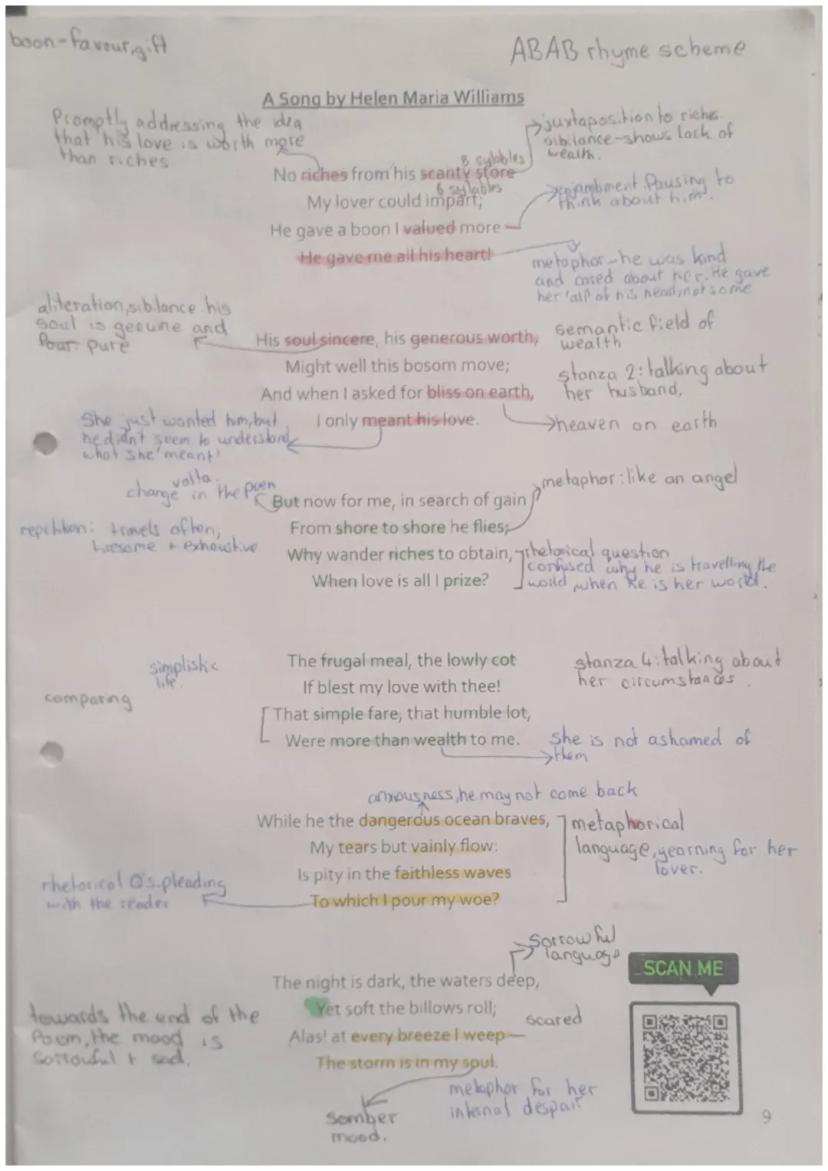 boon-favour,gift
ABAB rhyme scheme
A Song by Helen Maria Williams
Promptly addressing the idea
that his love is worth more
than riches
juxtaposition to riches.
sibilance-shows lack of
wealth.
8 sylables
No riches from his scanty store
6 sylables
My lover could impart;
He gave a boon I valued more –
enjambment Pausing to
think about him.
He gave me all his heart!
metaphor-he was kind
and cared about her. He gave
her 'all' of his head, not some
aliteration, sibilance his
soul is genuine and
pure
His soul sincere, his generous worth,
semantic field of
wealth
Might well this bosom move;
stanza 2: talking about
her husband.
And when I asked for bliss on earth,
I only meant his love.
heaven on earth
She just wanted him, but
he didn't seem to understand
what she 'meant'
volta-
change in the poem
metaphor: like an angel
But now for me, in search of gain
From shore to shore he flies;
repetition: travels often,
tiresome + exhaustive
Why wander riches to obtain,
When love is all I prize?
rhetorical question
confused why he is travelling the
world, when he is her world.
The frugal meal, the lowly cot
If blest my love with thee!
That simple fare, that humble lot,
Were more than wealth to me.
simplistic
life.
comparing
stanza 4: talking about
her circumstances.
She is not ashamed of
them
anxiousness, he may not come back
While he the dangerous ocean braves,
My tears but vainly flow:
Is pity in the faithless waves
To which I pour my woe?
metaphorical
language, yearning for her
lover.
rhetorical Q's. pleading
with the reader
Sorrowful
language
The night is dark, the waters deep,
Yet soft the billows roll;
Alas! at every breeze I weep –
The storm is in my soul.
scared
towards the end of the
Poem, the mood is
Sorrowful + sad.
metaphor for her
internal despair
Somber
mood.
SCAN ME
9